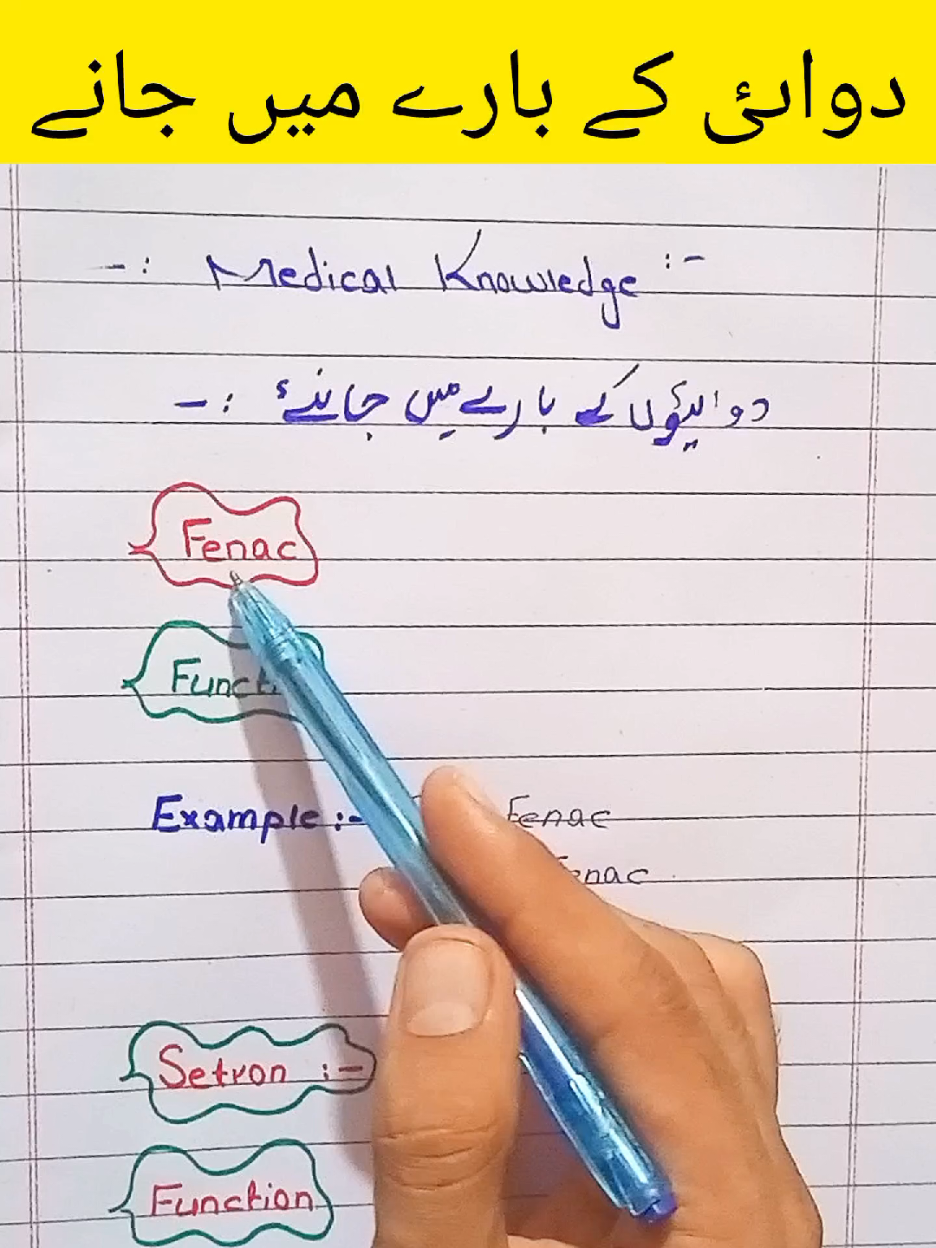 دوائ کے بارے میں جانے
-: Medical Knowledge :-
دوایئوں کے بارے میں جانیۓ :-
Fenac
Example :- Fenac
Setron :-
Function